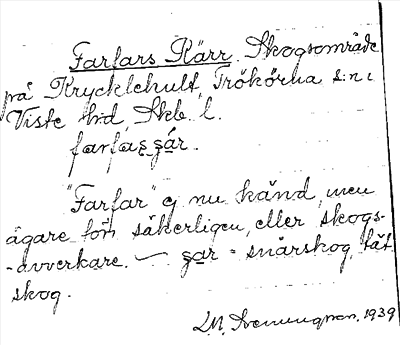 Farfars Kärr. Skogsområde
på Krycklehult, Trökörna s:n i
Viste h:d, Skb. l.
farfas
"Farfar" ej nu känd, men
ägare förr säkerligen, eller skogs-
-avverkare. — = snårskog, tät
skog.
1939